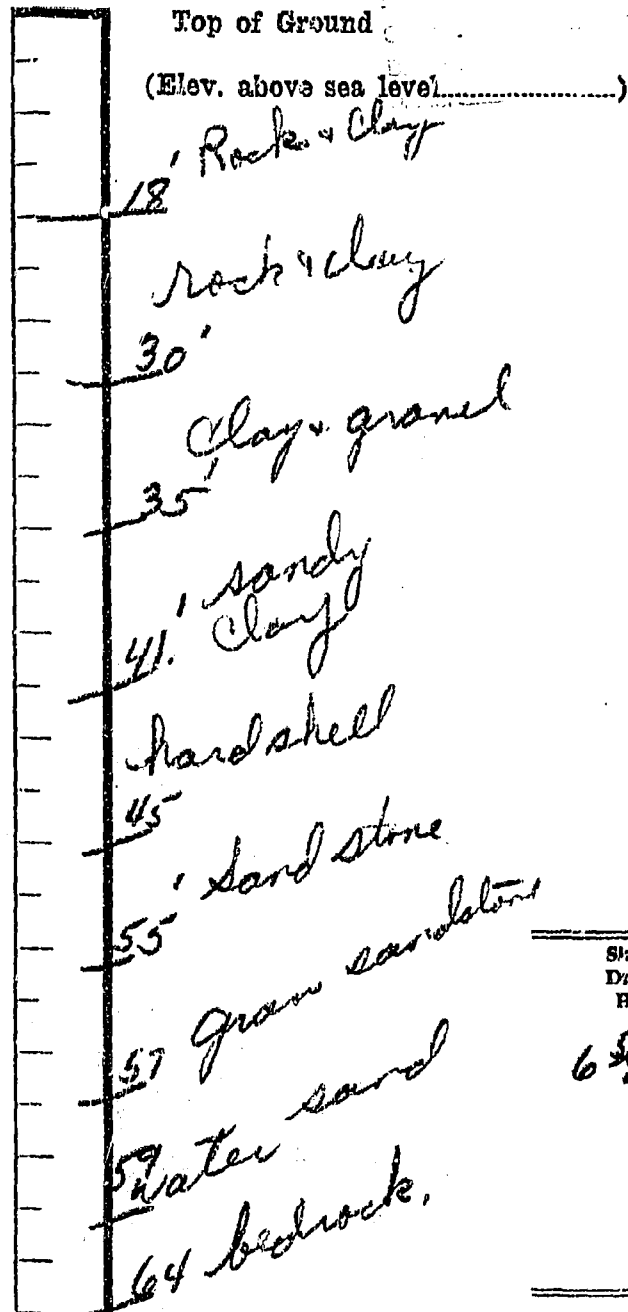 Top of Ground
(Elev. above sea level....................)
Rock & Clay
18'
rock & clay
30'
Clay & gravel
35'
sandy
41.' Clay
hard shell
45
' Sand stone
55
sandstone
57
water sand
59
64 bedrock.
6